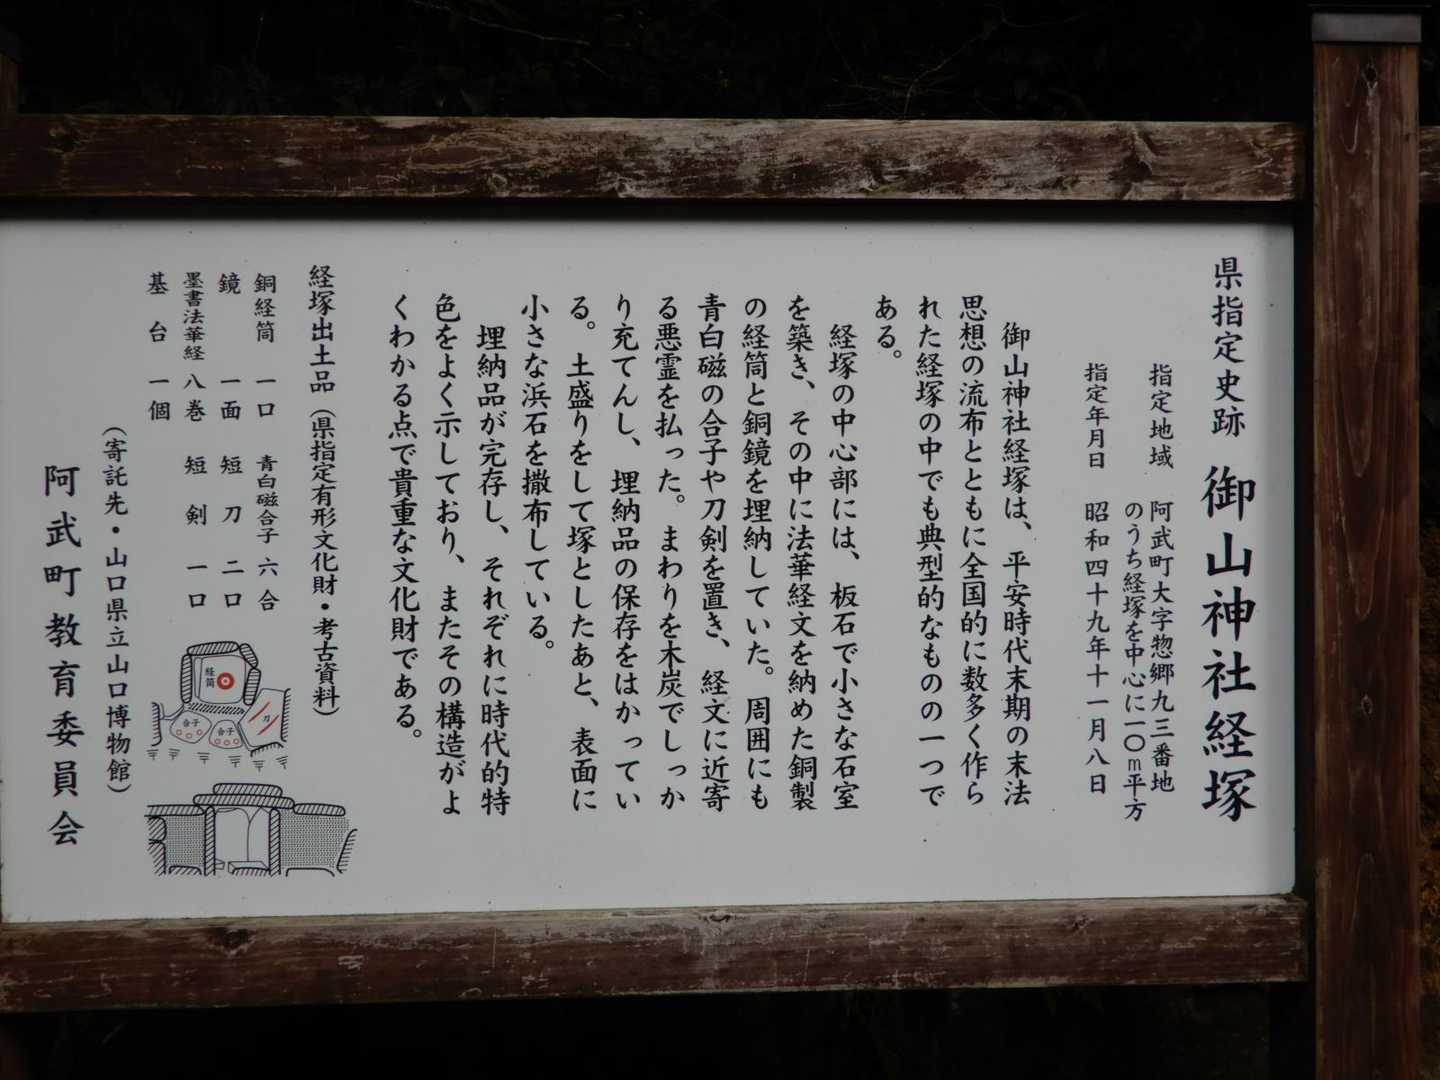 県指定史跡 御山神社経塚
指定地域 阿武町大字惣郷九三番地
のうち経塚を中心に一〇m平方
指定年月日 昭和四十九年十一月八日
御山神社経塚は、平安時代末期の末法
思想の流布とともに全国的に数多く作ら
れた経塚の中でも典型的なものの一つで
ある。
経塚の中心部には、板石で小さな石室
を築き、その中に法華経文を納めた銅製
の経筒と銅鏡を埋納していた。周囲にも
青白磁の合子や刀剣を置き、経文に近寄
る悪霊を払った。まわりを木炭でしっか
り充てんし、埋納品の保存をはかってい
る。土盛りをして塚としたあと、表面に
小さな浜石を撒布している。
埋納品が完存し、それぞれに時代的特
色をよく示しており、またその構造がよ
くわかる点で貴重な文化財である。
経塚出土品(県指定有形文化財・考古資料)
銅経筒 一口 青白磁合子 六合
鏡 一面 短刀 二口
墨書法華経 八巻 短剣 一口
基台 一個
(寄託先・山口県立山口博物館)
阿武町教育委員会
経筒
合子
合子
刀